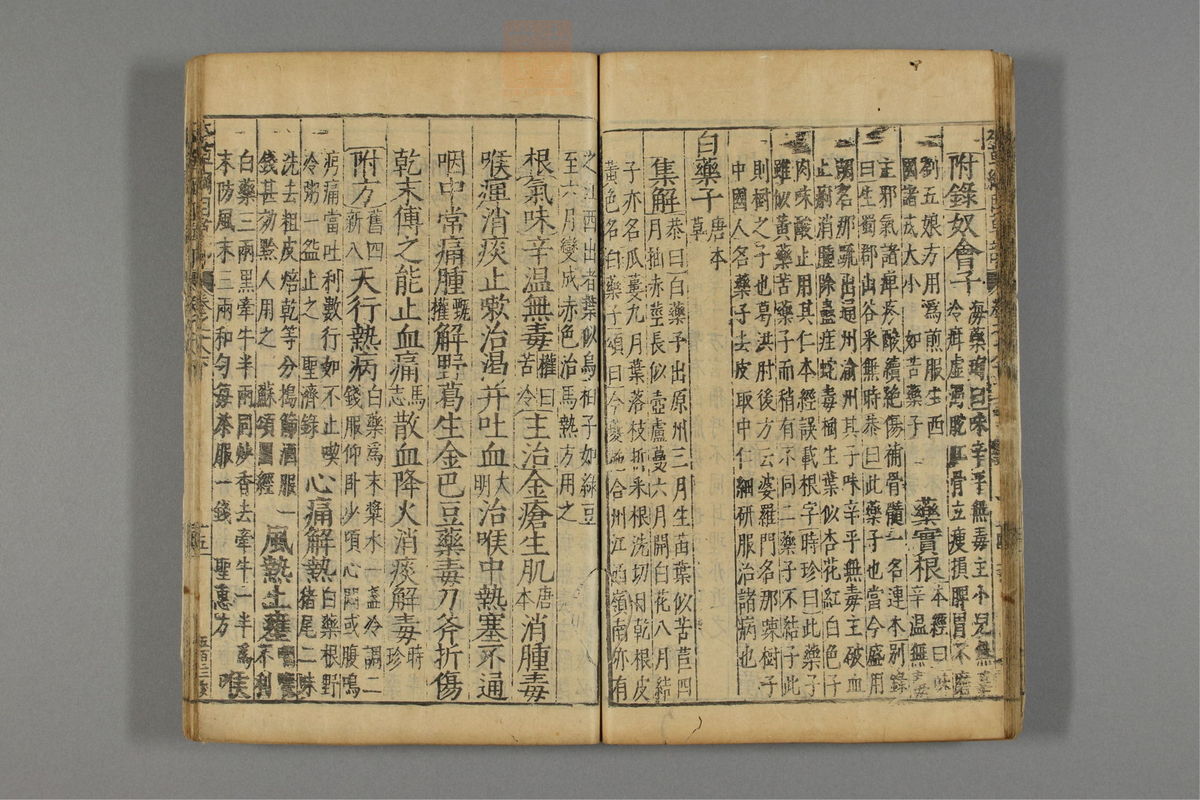 附錄奴會子海藥珣曰味辛平無毒主小兒無
冷疳虛渴脫肛骨立瘦損脾胃不磨
劉五娘方用爲煎服生西
國諸戎大小如苦藥子
藥實根本經曰味辛溫無毒
主邪氣諸痺疼酸續絕傷補骨髓一名連木别錄
曰生蜀郡山谷采無時恭曰此藥子也當今盛用
胡名那疏出通州渝州其子味辛平無毒主破血
止痢消腫除蠱疰蛇毒樹生葉似杏花紅白色子
肉味酸止用其仁本經誤載根字時珍曰此藥子
雖似黃藥苦藥子而稍有不同二藥子不結子此
則樹之子也葛洪肘後方云婆羅門名那疎樹子
中國人名藥子去皮取中仁細研服治諸病也
白藥子唐本草
集解恭曰白藥子出原州三月生苗葉似苦苣四
月抽赤莖長似壺蘆蔓六月開白花八月結
子亦名瓜蔞九月葉落枝折采根洗切日乾根皮
黃色名白藥子頌曰今夔施合州江西嶺南亦有
之江西出者葉似烏桕子如綠豆
至六月變成赤色治馬熱方用之
根氣味辛溫無毒權曰苦冷主治金瘡生肌唐本消腫毒
喉痺消痰止嗽治渴并吐血大明治喉中熱塞不通
咽中常痛腫甄權解野葛生金巴豆藥毒刀斧折傷
乾末傅之能止血痛馬志散血降火消痰解毒時珍
附方舊四新八天行熱病白藥爲末漿水一盞冷調二
錢服仰卧少頃心悶或腹鳴
㽲痛當吐利數行如不止喫
冷粥一盌止之聖濟錄心痛解熱白藥根野
猪尾二味
洗去粗皮焙乾等分搗篩酒服一
錢甚効黔人用之蘇頌圖經風熱上壅咽喉不利
白藥三兩黑牽牛半兩同炒香去牽牛一半爲
末防風末三兩和勻每茶服一錢聖惠方喉